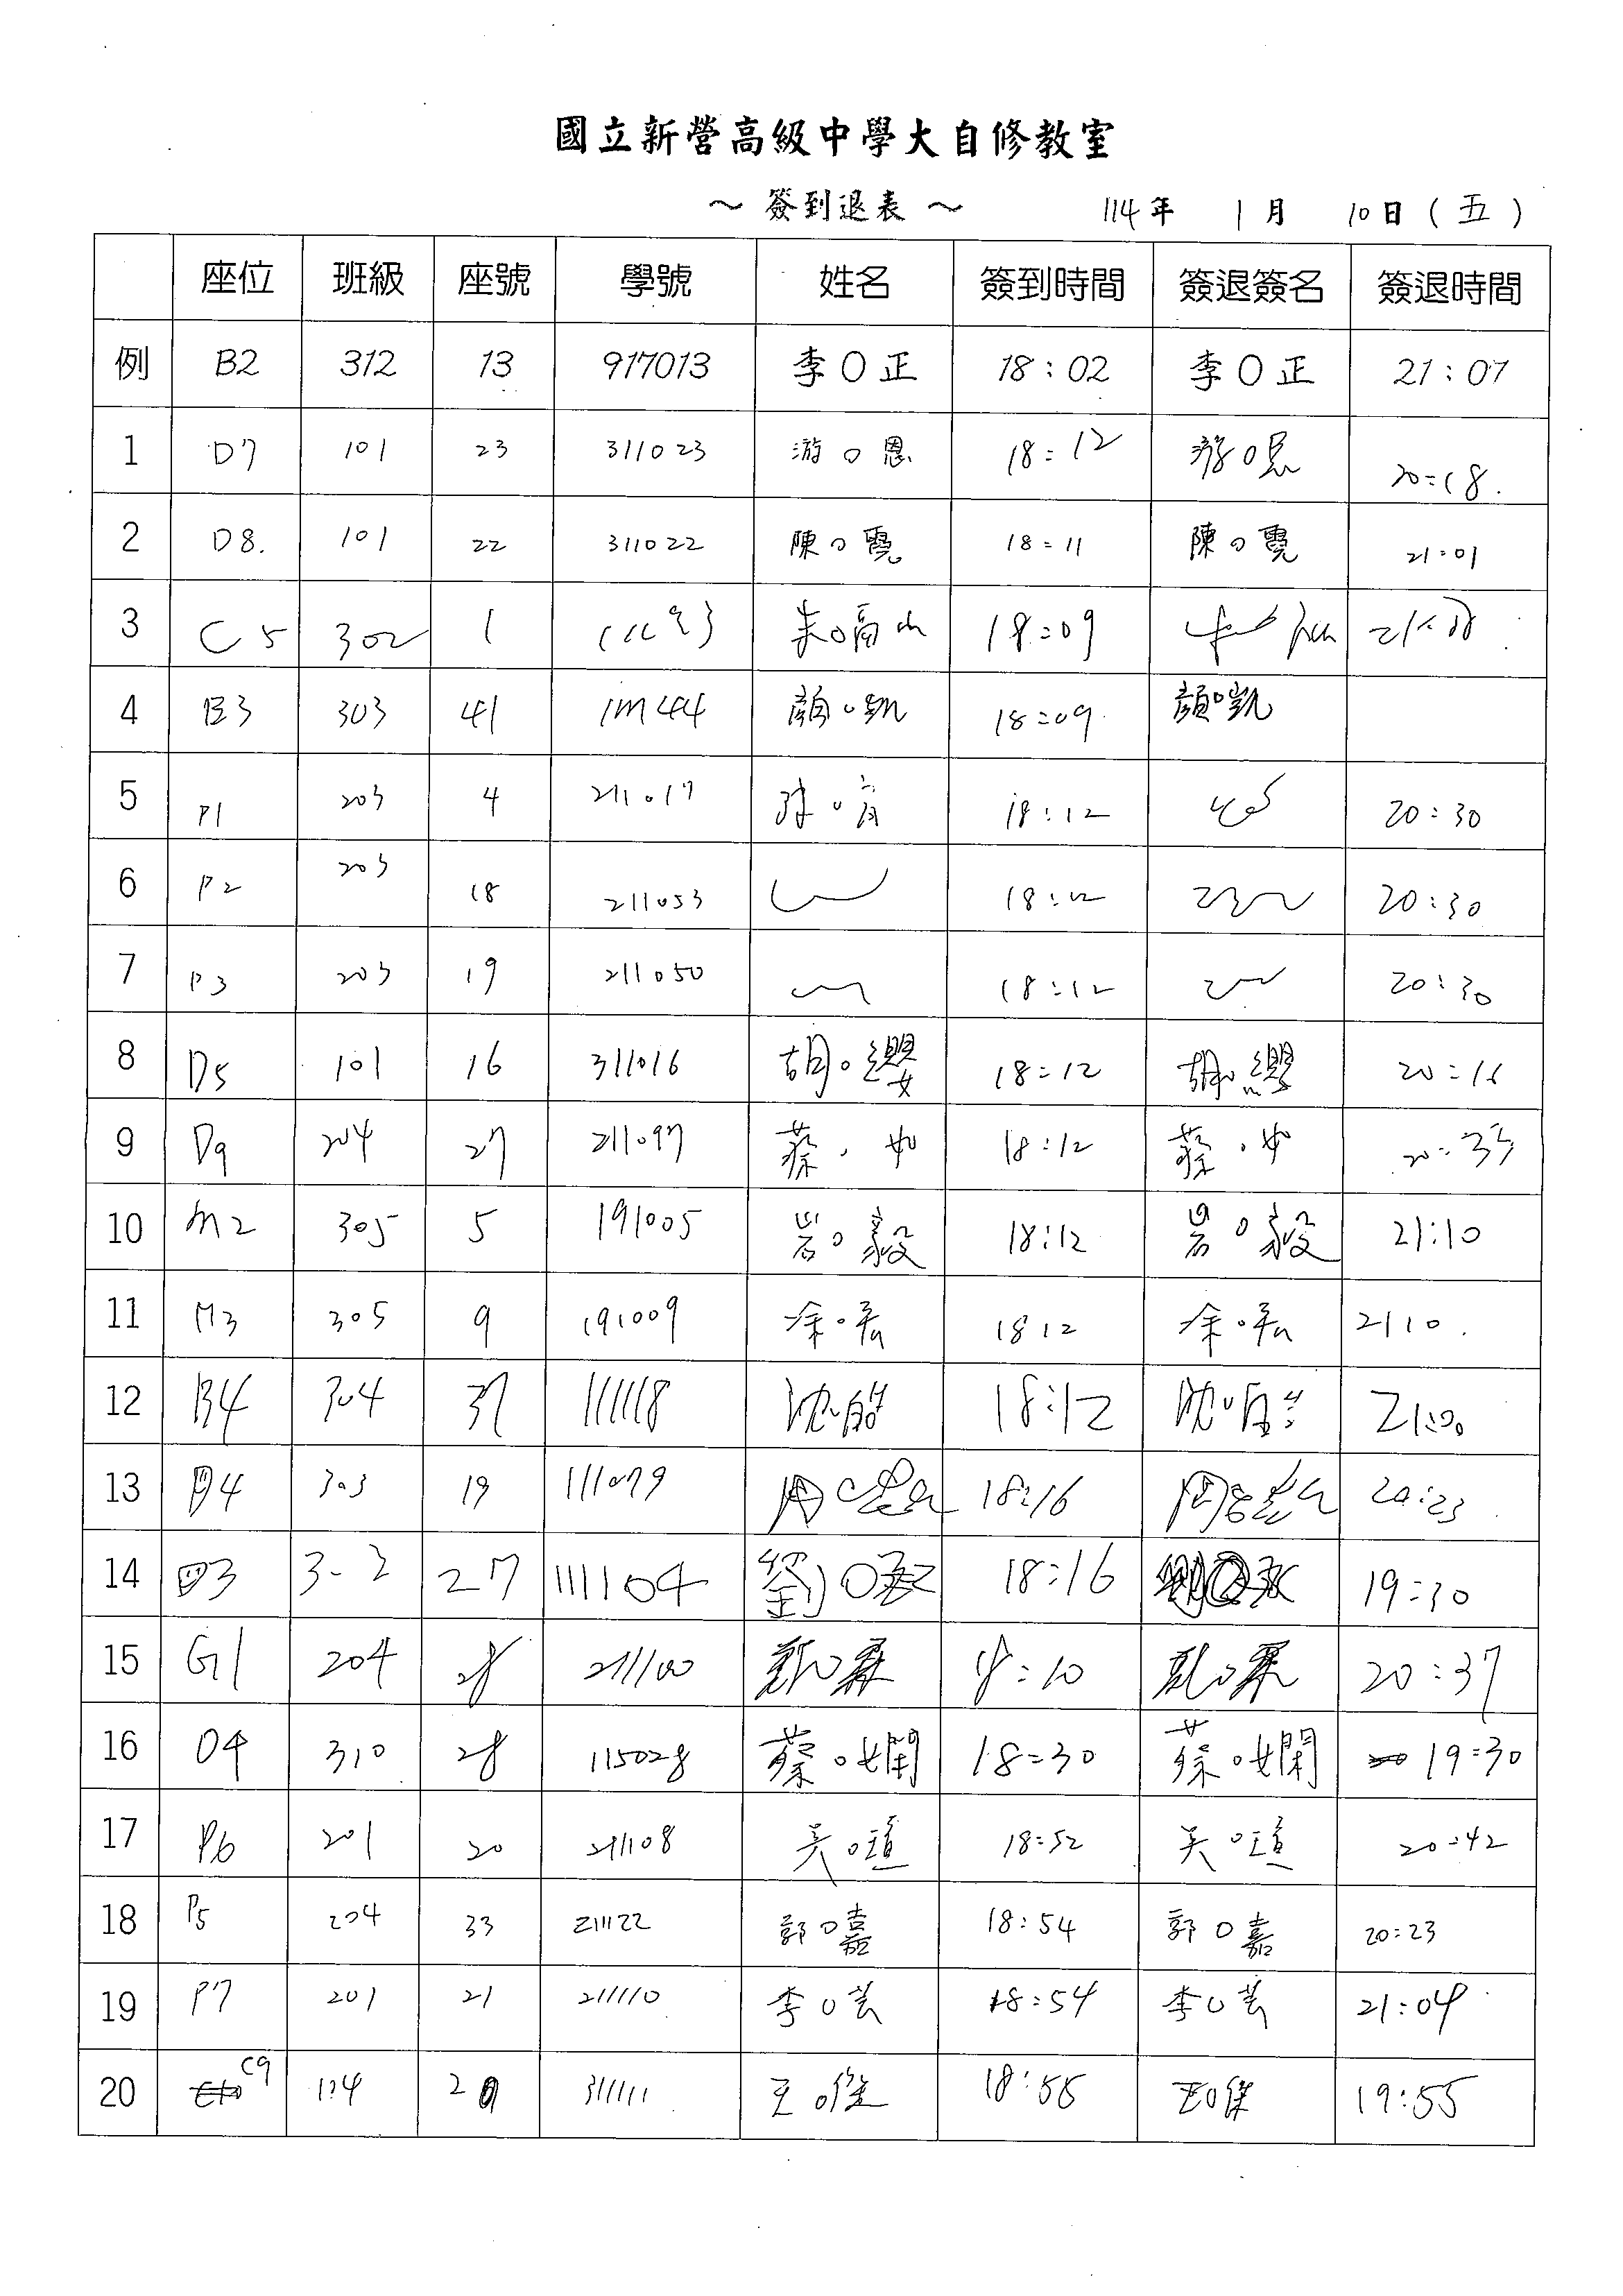 國立新營高級中學大自修教室
～ 簽到退表 ～ 114年 1月 10日(五)
座位 班級 座號 學號 姓名 簽到時間 簽退簽名 簽退時間
例 B2 312 13 917013 李O正 18:02 李O正 21:07
1 D7 101 23 311023 游O恩 18:12 游O恩 20:18.
2 D8. 101 22 311022 陳O霓 18:11 陳O霓 21:01
3 C5 302 1 18:09
4 B3 303 41 顏O凱 18:09 顏O凱
5 P1 203 4 211017 18:12 20:30
6 P2 203 18 211053 18:12 20:30
7 P3 203 19 211050 18:12 20:30
8 D5 101 16 311016 胡O纓 18:12 胡O纓 20:16
9 D9 204 27 211097 蔡O如 18:12 蔡O如 20:33
10 M2 305 5 191005 岩O毅 18:12 岩O毅 21:10
11 M3 305 9 191009 涂O宏 1812 涂O宏 2110
12 B4 304 37 111118 18:12 21:00
13 303 19 111079 18:16 20:23
14 27 111104 劉O 18:16 19:30
15 G1 204 28 211100 18:10 20:37
16 O4 310 28 115028 蔡O嫻 18:30 蔡O嫻 19:30
17 P6 201 20 211108 吳O 18:52 吳O 20:42
18 P5 204 33 211122 郭O嘉 18:54 郭O嘉 20:23
19 P7 201 21 211110 李O芸 18:54 李O芸 21:04
20 C9 104 311111 王O傑 18:55 王O傑 19:55